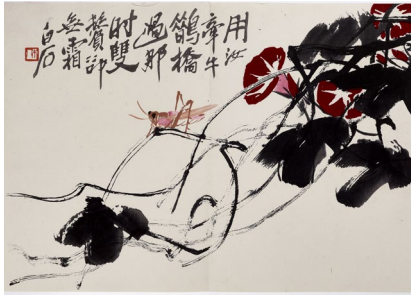 用汝
牽牛
鵲橋
過那
时雙
鬢卻
無霜
白石